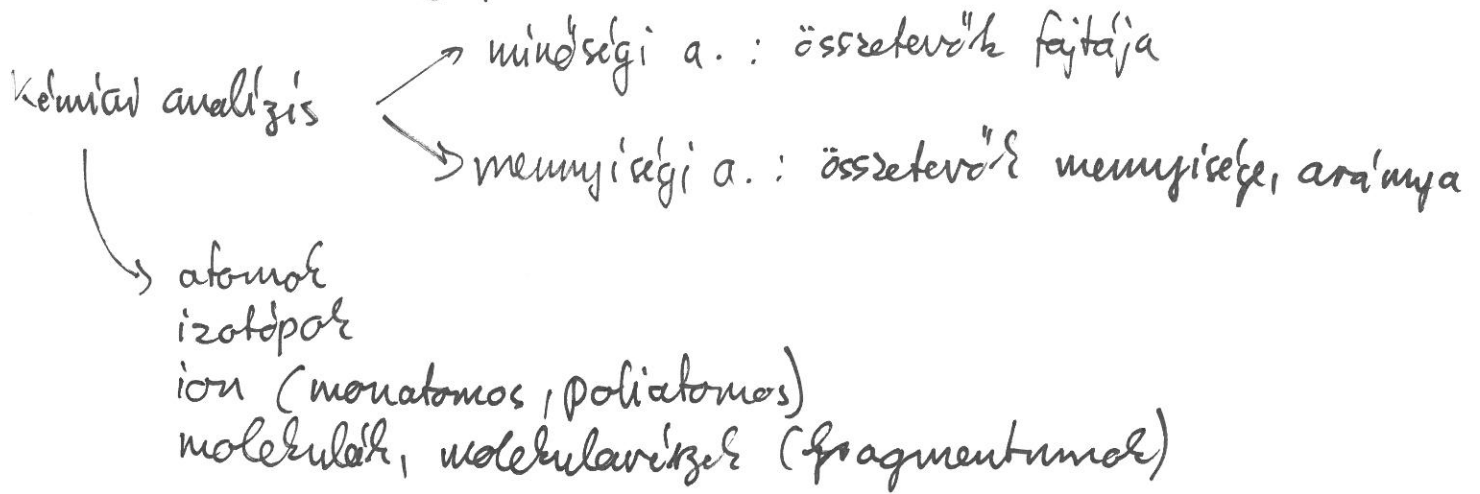 minőségi a. : összetevők fajtája
Kémiai analízis
mennyiségi a. : összetevők mennyisége, aránya
atomok
izotópok
ion (monatomos, poliatomos)
molekulák, molekularészek (fragmentumok)